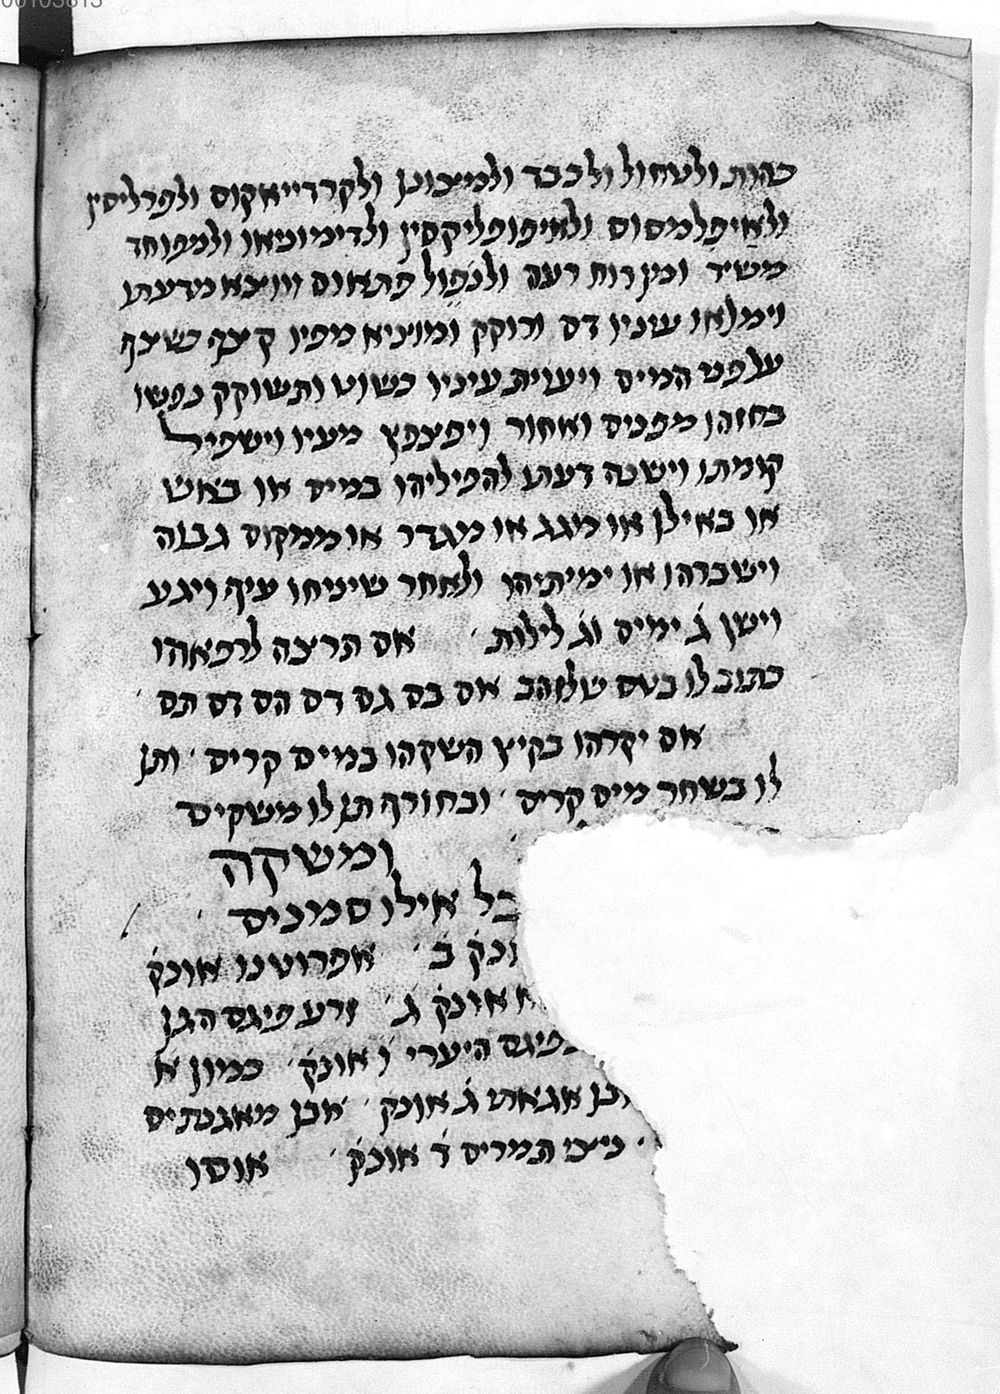 00103813
כהות ולטחול ולכבד ולמיכונין ולקרדייאקוס ולפרליסין
ולאיפלמסוס ולאיפופליקסין ולדימוניאו ולמפוחד
משיד ומן רוח רעה ולנפול פתאום ויוצא מדעתו
וימלאו עיניו דם ורוקק ומוציא מפיו קצף כשצף
על פני המים ויעוית עיניו כשוט ותשוקק נפשו
כחזהו מפנים ואחור ויפצפץ מעיו וישפיל
קומתו וישנה דעתו להפיליהו במים או באש
או באילן או מגג או מגדר או ממקום גבוה
וישברהו או ימיתיהו ולאחר שיניחו עיף ויגע
וישן ג ימים וג לילות אם תרצה לרפאהו
כתוב לו בשם שלזהב אם בם גם דם הם זם תם
אם יקרהו בקיץ השקהו במים קרים ותן
לו בשחר מים קרים ובחורף תן לו משקים
ומשקה
כל אילו סמנים
אונק ב אפרוטנו אונק
אונק ג זרע פיגם הגן
פיגם היערי ו אונק כמון א
אבן אגאתו ג אונק אבן מאגנתים
ניצי תמרים ד אונק אוסו